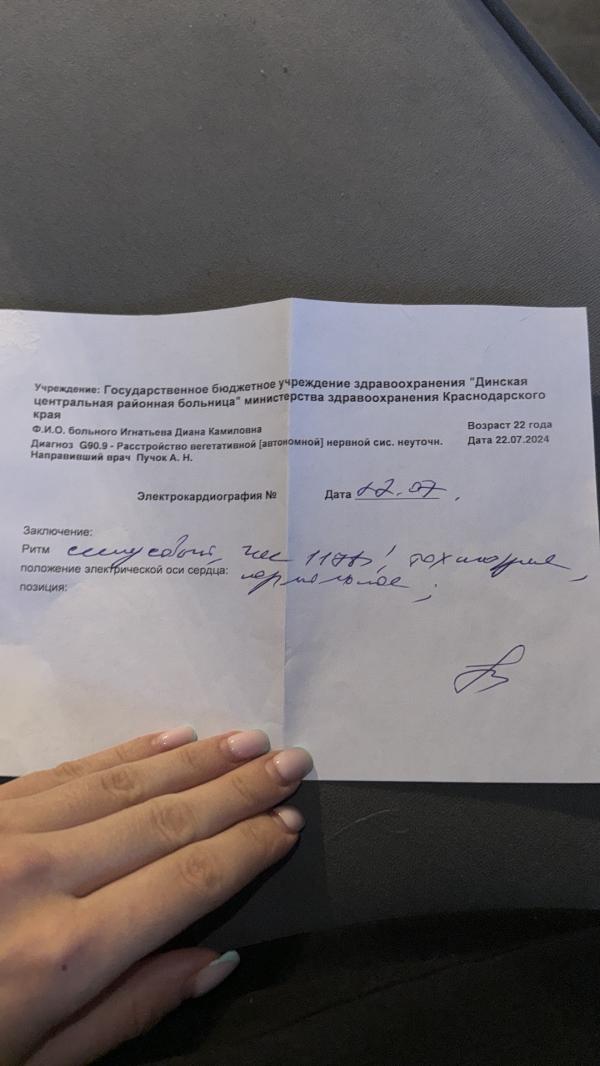 Учреждение: Государственное бюджетное учреждение здравоохранения "Динская
центральная районная больница" министерства здравоохранения Краснодарского
края
Ф.И.О. больного Игнатьева Диана Камиловна Возраст 22 года
Диагноз G90.9 - Расстройство вегетативной [автономной] нервной сис. неуточн. Дата 22.07.2024
Направивший врач Пучок А. Н.
Электрокардиография № Дата 22.07.
Заключение:
Ритм синусовый, чсс тахикардия,
положение электрической оси сердца: нормальное;
позиция: